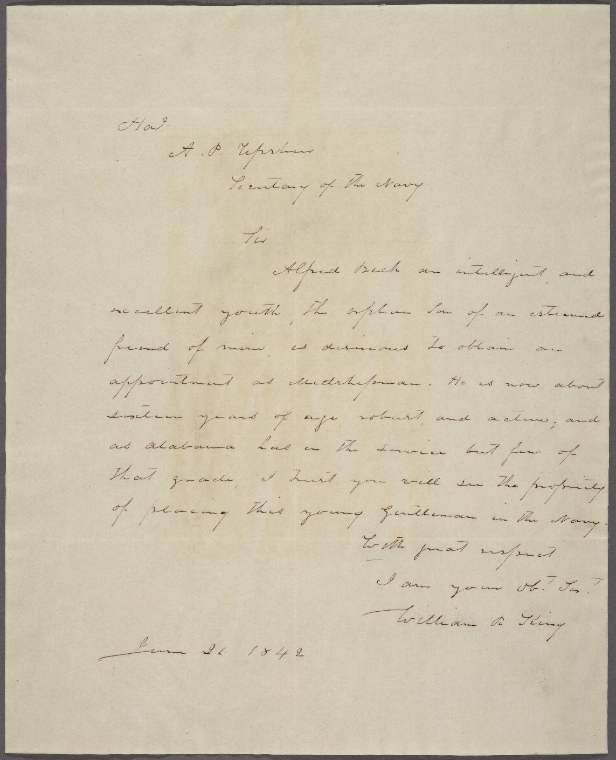 Honl
A. P. Upshur
Secretary of the Navy
Sir
Alfred Beck an intelligent, and
excellent youth, the orphan Son of an esteemed
friend of mine, is desirous to obtain an
appointment as Midshipman. He is now about
sixteen years of age robust, and active, and
as Alabama has in the service but few of
that grade, I trust you will see the propriety
of placing this young Gentleman in the Navy.
With great respect
I am your Obt. Sert.
William R King
1842